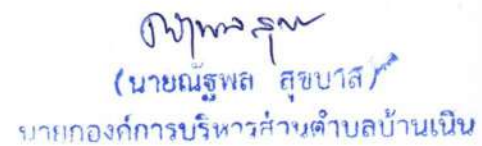 (นายณัฐพล สุขบาส)
นายกองค์การบริหารส่วนตำบลบ้านเนิน